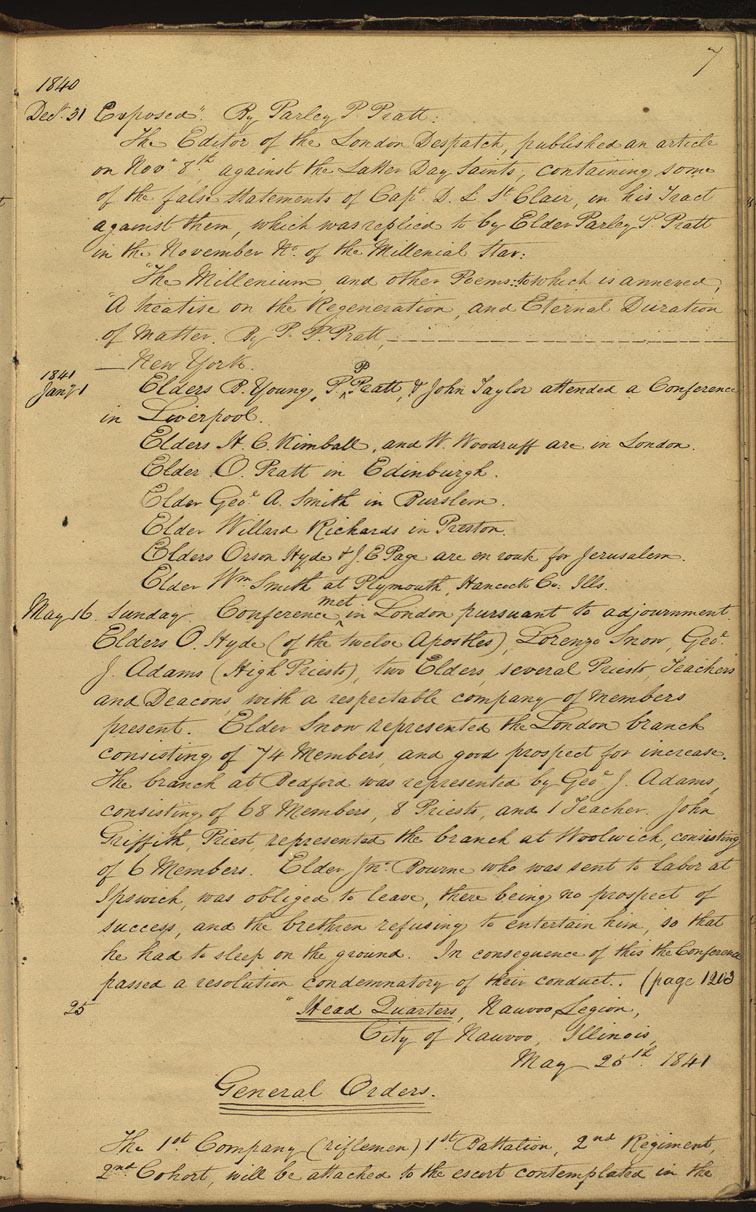 7
1840
Decr. 31 Exposed". By Parley P Pratt.
The Editor of the London Despatch, published an article
on Novr 8th. against the Latter Day Saints, containing some
of the false statements of Capt. D. L. St Clair, in his Tract
against them, which was replied to by Elder Parley P Pratt
in the November No. of the Millenial Star:
"The Millenium, and other Poems: to which is annexed,
"A treatise on the Regeneration, and Eternal Duration
of Matter. By P. P. Pratt,
— New York.
1841
Jany 1 Elders B. Young, P. P Pratt, & John Taylor attended a Conference
in Liverpool.
Elders H C. Kimball, and W. Woodruff are in London.
Elder O. Pratt in Edinburgh.
Elder Geoe A. Smith in Burslem.
Elder Willard Richards in Preston
Elders Orson Hyde & J. E Page are en rout for Jerusalem.
Elder Wm Smith at Plymouth, Hancock Co. Ills.
May 16. Sunday. Conference met in London pursuant to adjournment.
Elders O. Hyde (of the twelve Apostles), Lorenzo Snow, Geoe.
J. Adams (High Priests), two Elders, several Priests, Teachers
and Deacons, with a respectable company of members
present. Elder Snow represented the London branch
consisting of 74 Members, and good prospect for increase.
The branch at Bedford was represented by Geoe. J. Adams,
consisting of 68 Members, 8 Priests, and 1 Teacher. John
Griffith, Priest, represented the branch at Woolwich, consisting
of 6 Members. Elder Jno. Bourne who was sent to labor at
Ipswich, was obliged to leave, there being no prospect of
success, and the brethren refusing to entertain him, so that
he had to sleep on the ground. In consequence of this the Conference
passed a resolution condemnatory of their conduct.. (page 1203
25 "Head Quarters, Nauvoo Legion,
City of Nauvoo, Illinois,
May 25th. 1841
General Orders.
The 1st Company (riflemen) 1st Battalion, 2nd Regiment,
2nd Cohort, will be attached to the escort contemplated in the